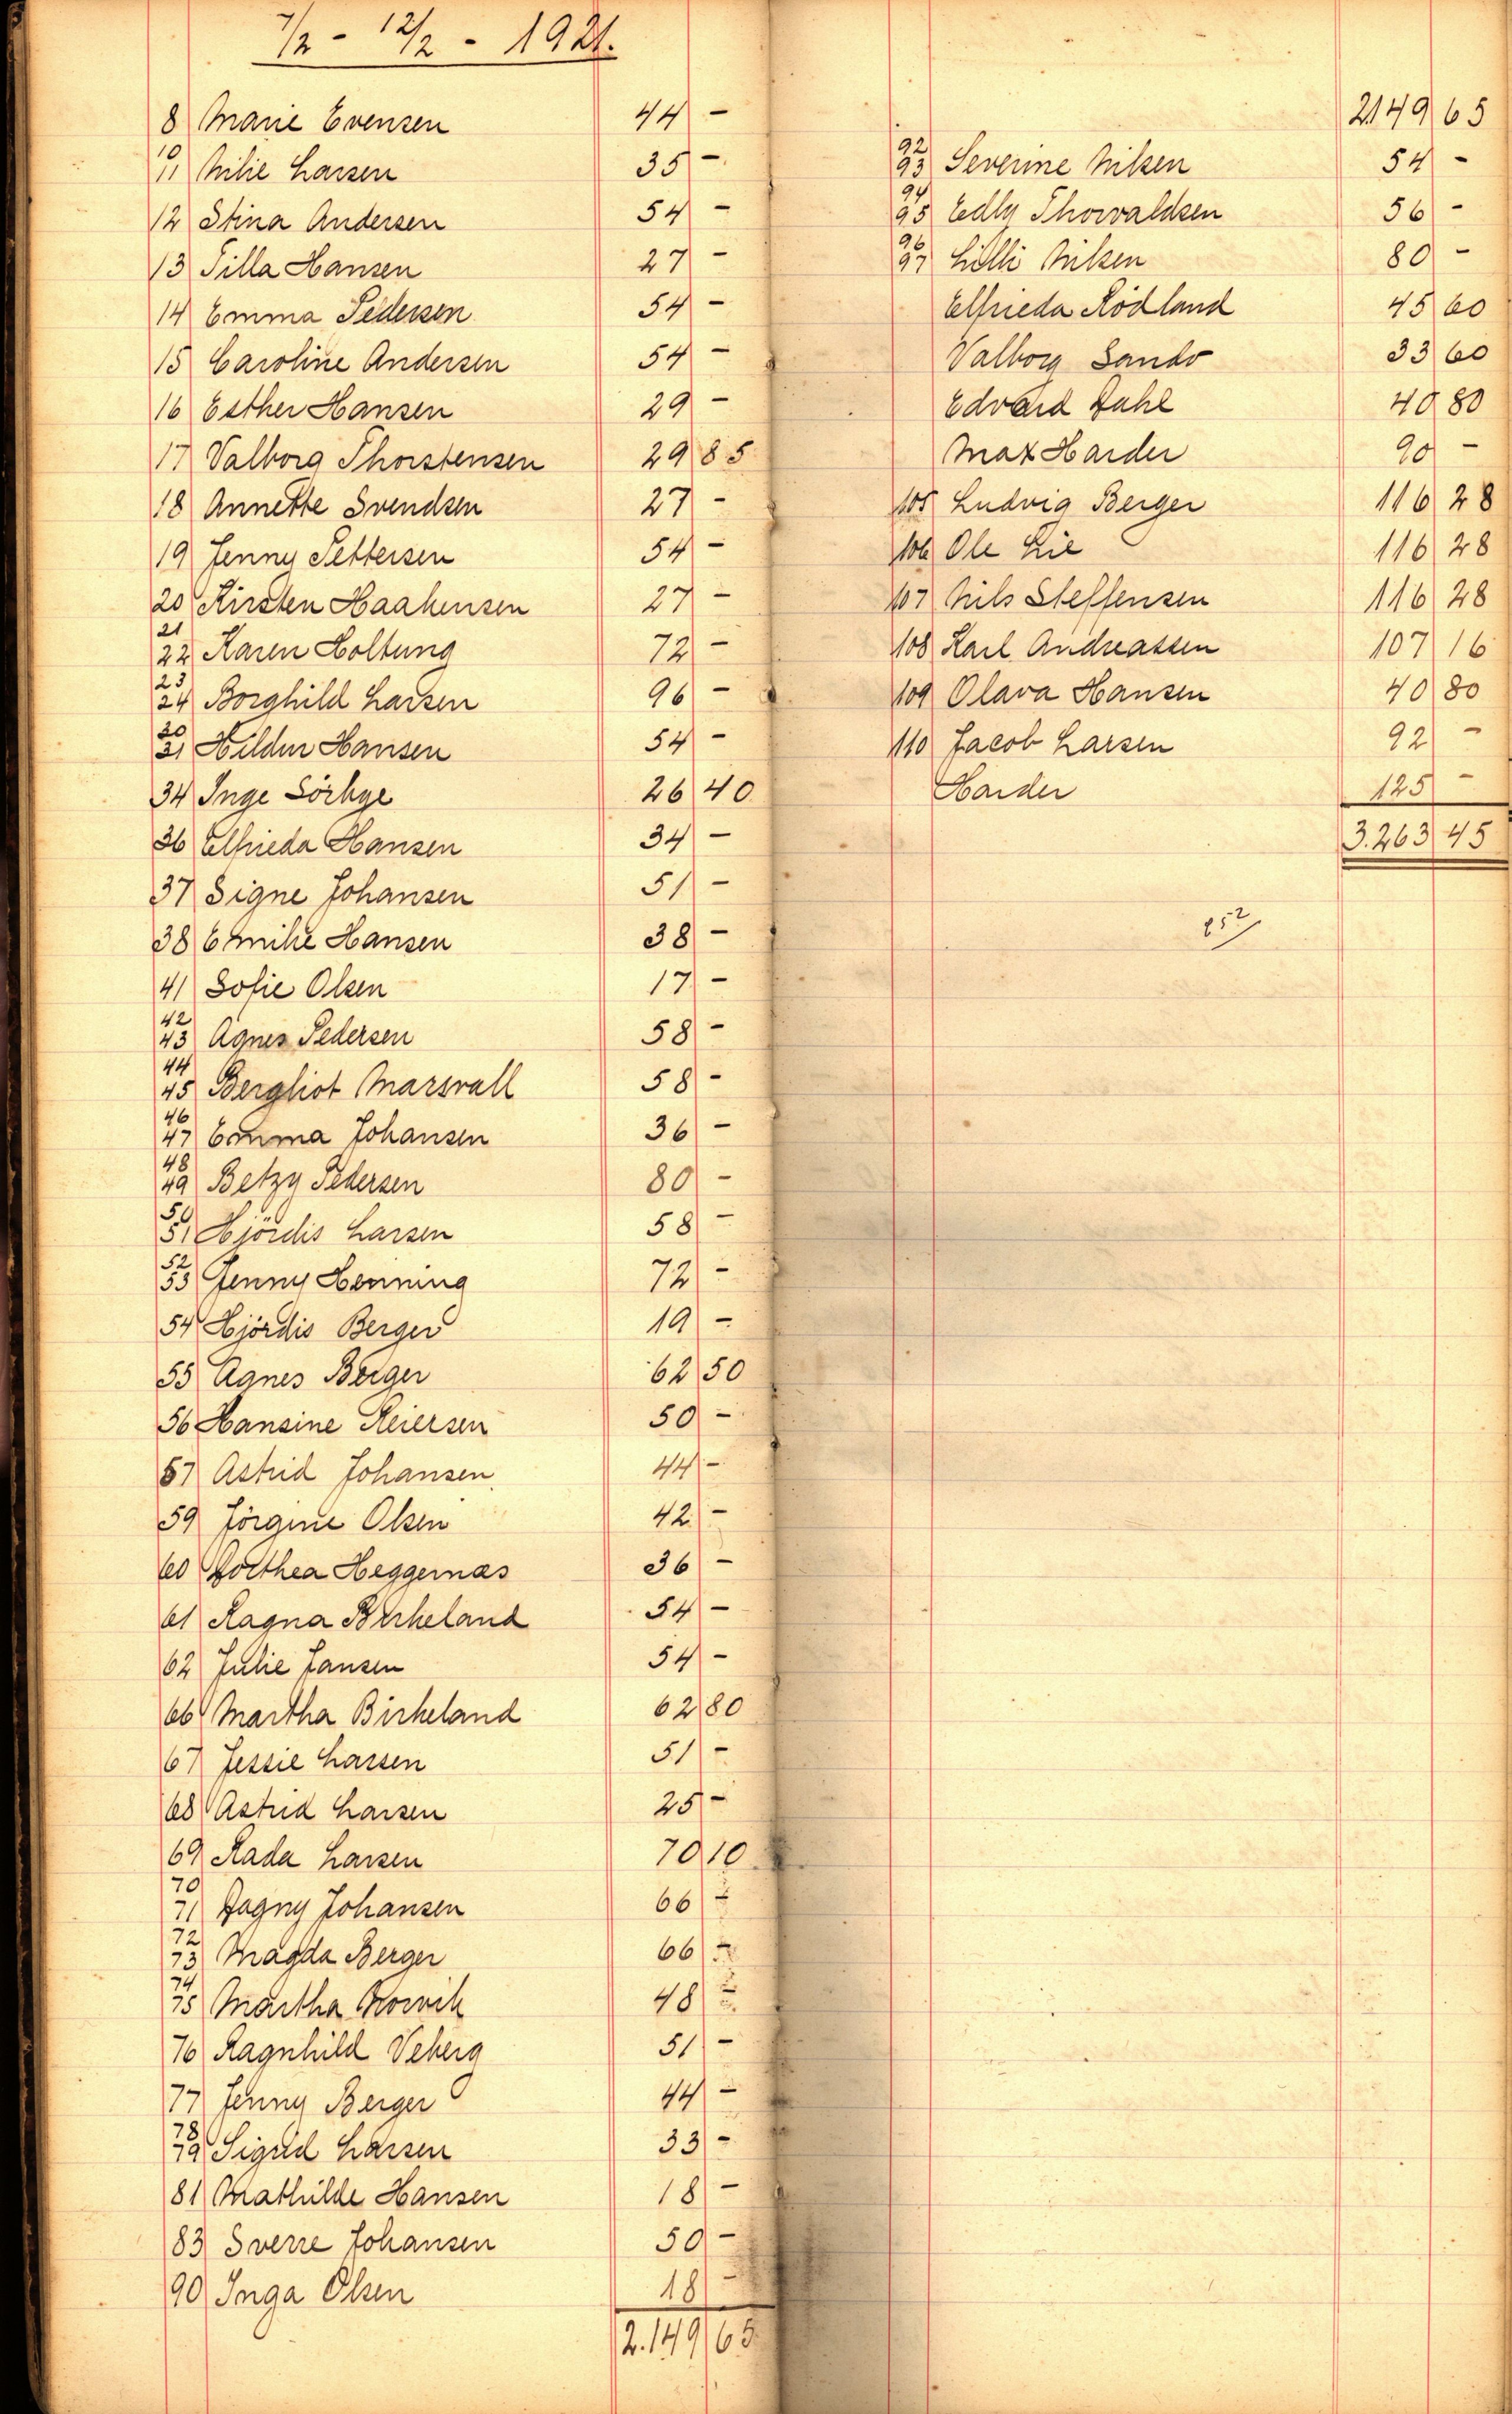 7/2 - 12/2 - 1921.
8 Marie Evensen 44 -
10
11 Milie Larsen 35 -
12 Stina Andersen 54 -
13 Tilla Hansen 27 -
14 Emma Pedersen 54 -
15 Caroline Andersen 54 -
16 Esther Hansen 29 -
17 Valborg Thorstensen 29 85
18 Annette Svendsen 27 -
19 Jenny Pettersen 54 -
20 Kirsten Haakensen 27 -
21
22 Karen Holtung 72 -
23
24 Borghild Larsen 96 -
30
31 Hildur Hansen 54 -
34 Inge Sörhge 26 40
36 Elfrieda Hansen 34 -
37 Signe Johansen 51 -
38 Emilie Hansen 38 -
41 Sofie Olsen 17 -
42
43 Agnes Pedersen 58 -
44
45 Bergliot Marsvall 58 -
46
47 Emma Johansen 36 -
48
49 Betzy Pedersen 80 -
50
51 Hjördis Larsen 58 -
52
53 Jenny Henning 72 -
54 Hjördis Berger 19 -
55 Agnes Berger 62 50
56 Hansine Reiersen 50 -
57 Astrid Johansen 44 -
59 Jörgine Olsen 42 -
60 Dorthea Heggernæs 36 -
61 Ragna Birkeland 54 -
62 Julie Jansen 54 -
66 Martha Birkeland 62 80
67 Jessie Larsen 51 -
68 Astrid Larsen 25 -
69 Rada Larsen 70 10
70
71 Dagny Johansen 66 -
72
73 Magda Berger 66 -
74
75 Martha 48 -
76 Ragnhild Veberg 51 -
77 Jenny Berger 44 -
78
79 Sigrid Larsen 33 -
81 Mathilde Hansen 18 -
83 Sverre Johansen 50 -
90 Inga Olsen 18 -
2.149 65
2149 65
92
93 Severine Nilsen 54 -
94
95 Edly Thorvaldsen 56 -
96
97 Lilli Nilsen 80 -
Elfrieda Rödland 45 60
Valborg Sandø 33 60
Edvard Dahl 40 80
Max Harder 90 -
105 Ludvig Berger 116 28
106 Ole Lie 116 28
107 Nils Steffensen 116 28
108 Karl Andreassen 107 16
109 Olava Hansen 40 80
110 Jacob Larsen 92 -
Harder 125 -
3.263 45